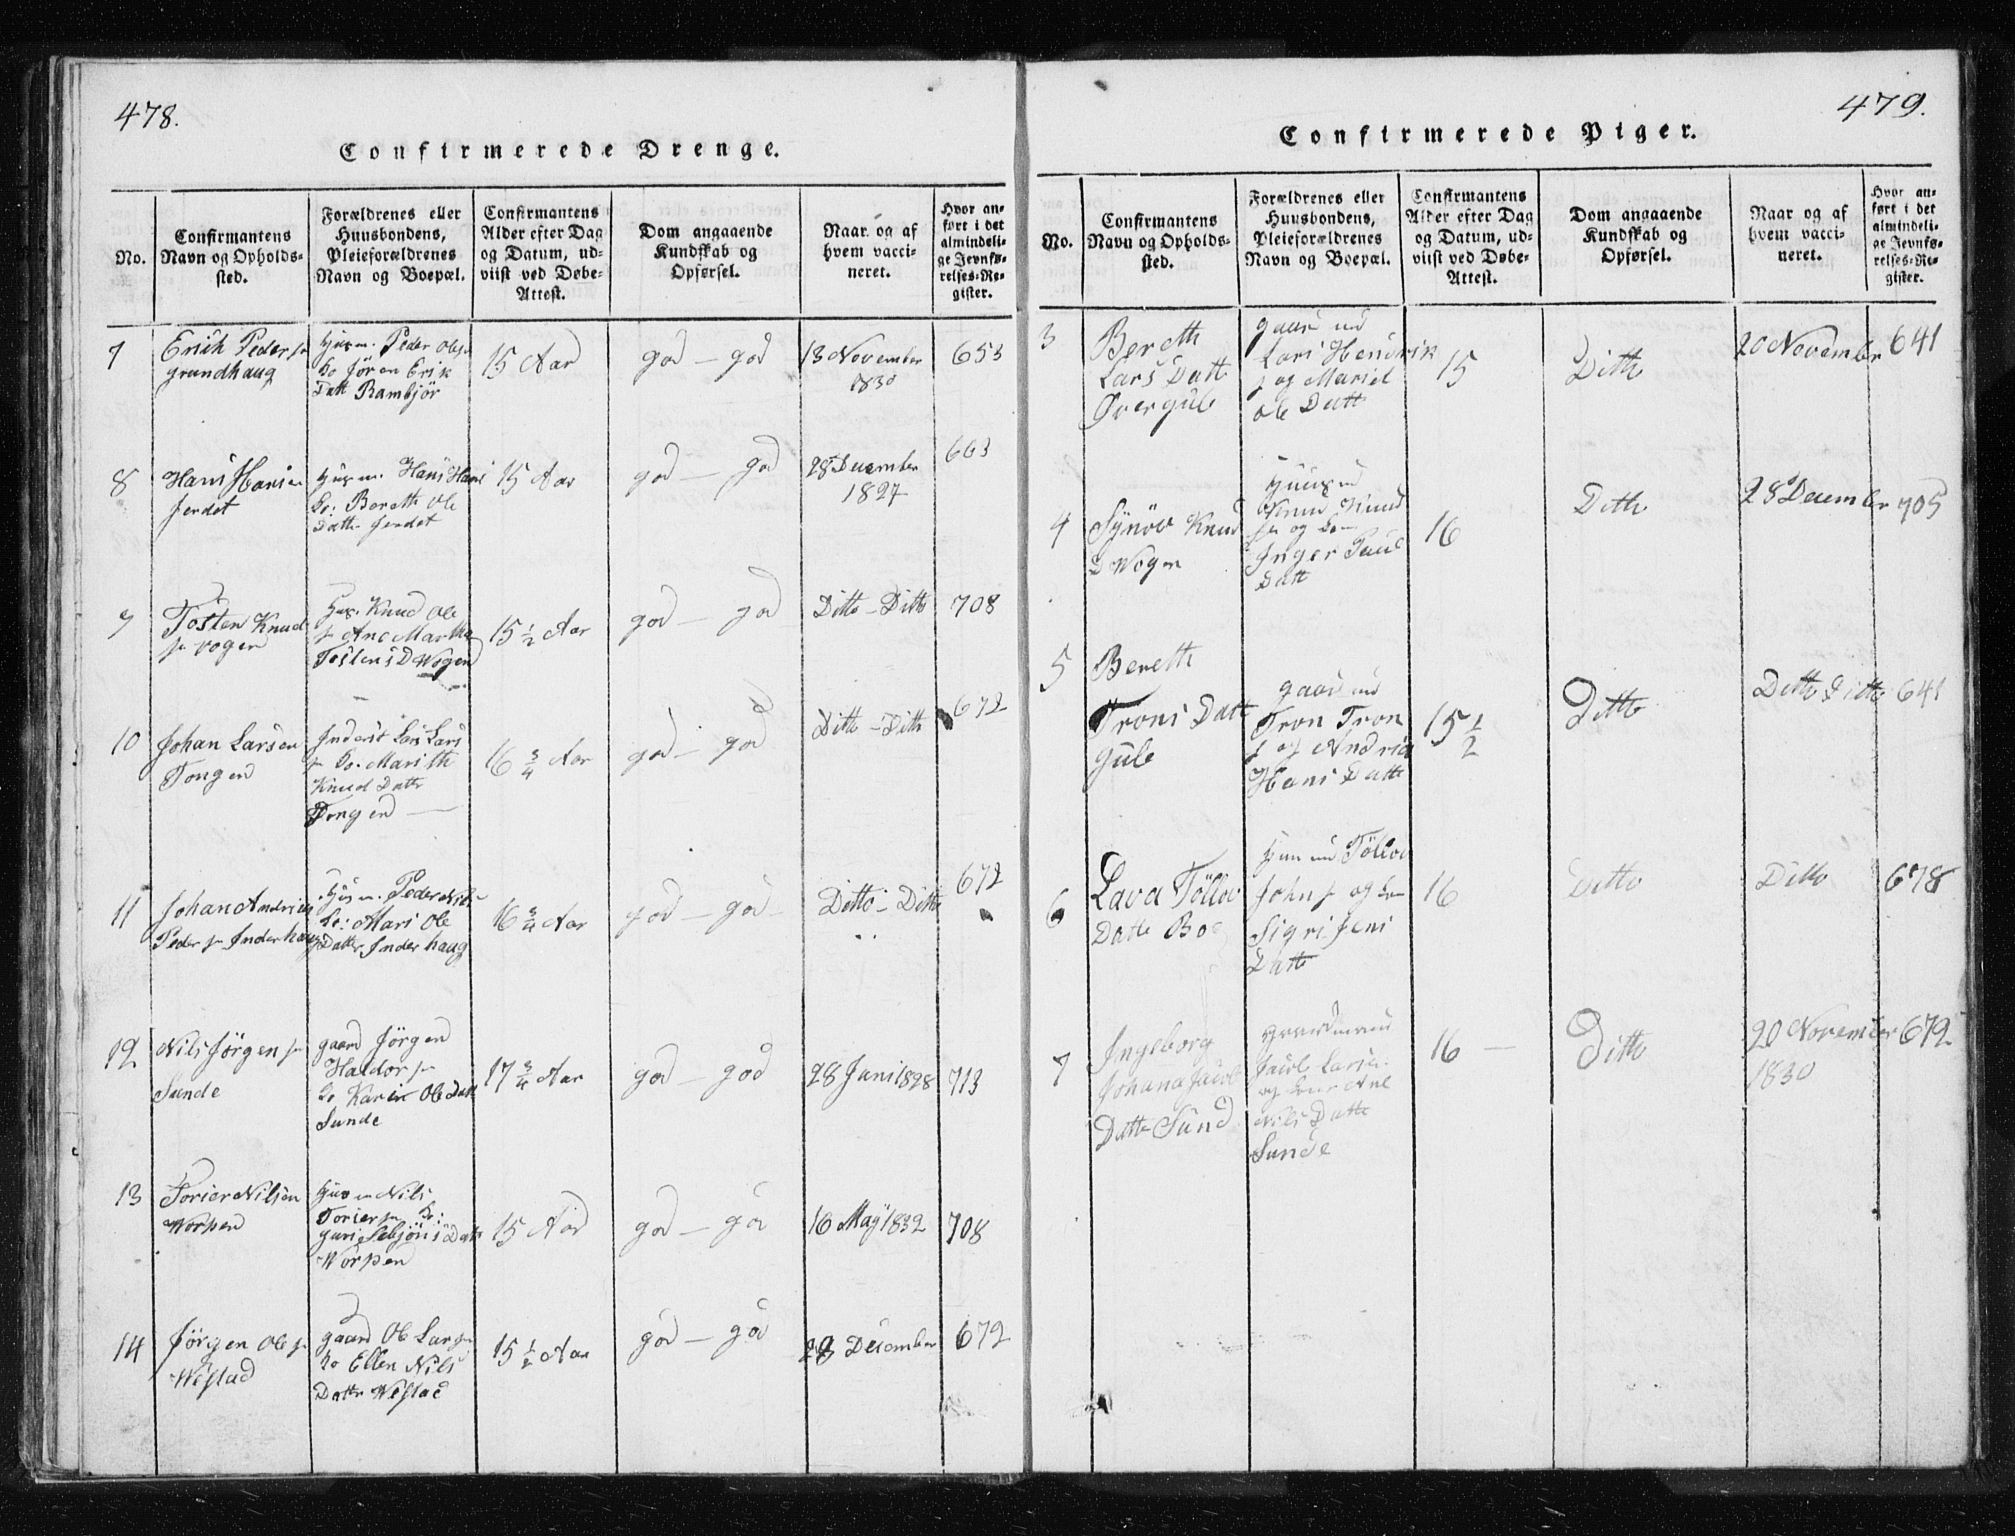 478.
Confirmerede Drenge.
No.
Confirmantens
Navn og Opholds-
sted.
Forældrenes eller
Huusbondens,
Pleieforældrenes
Navn og Boepæl.
Confirmantens
Alder efter Dag
og Datum, ud-
viist ved Døbe-
Attest.
Dom angaaende
Kundskab og
Opførsel.
Naar og af
hvem vacci-
neret.
Hvor an-
ført i det
almindeli-
ge Jevnfø-
relses-Re-
gister.
7
Erich Peder sn
grundhaug
Husm. Peder Ols
Ko Jören Erik
Datt Rambjör
15 Aar
god - god
13 November
1830
653
8
Hans Hansen
ferdet
Husm. Hans Hans
Ko: Bereth Ole
Datter ferdet
15 Aar
god - god
28 December
1827
663
9
Tosten Knud
sn vogen
Hus. Knud Ole
sn Ane Martha
Tostens D Wogen
15 1/2 Aar
god - god
Ditto - Ditto
708
10
Johan Larsen
Tongen
Inderst Lars Lars
sn Ko. Marith
Knud Datter
Tongen
16 3/4 Aar
god - god
Ditto - Ditto
672
11
Johan Andreas
Peder sn Inderhaug
Husm. Peder Nils
Ko: Mari Ole
Datter Inderhaug
16 3/4 Aar
god - god
Ditto - Ditto
672
12
Nils Jörgen sn
Sunde
gaard Jörgen
Haldor sn
Ko Karen Ole Datt
Sunde
17 3/4 Aar
god - god
28 Juni 1828
713
13
Torier Nilsen
Worpen
Husm Nils
Torier sn Ko:
guri Sebjöns Datt
Worpen
15 Aar
god - god
16 May 1832
708
14
Jörgen Ole sn
Westad
gaard Ole Lars sn
Ko Ellen Nils
Datter Westad
15 1/2 Aar
god - god
28 December
672
479.
Confirmerede Piger.
No.
Confirmantens
Navn og Opholds-
sted.
Forældrenes eller
Huusbondens,
Pleieforældrenes
Navn og Boepæl.
Confirmantens
Alder efter Dag
og Datum, ud-
viist ved Døbe-
Attest.
Dom angaaende
Kundskab og
Opførsel.
Naar og af
hvem vacci-
neret.
Hvor an-
ført i det
almindeli-
ge Jevnfø-
relses-Re-
gister.
3
Bereth
Lars Datt
Övergule
gaard md
Lars Hendrik
s og Mariet
Ole Datt
15
Ditto
20 November
641
4
Synöv Knud
D Wogen
Huus md
Knud Knud
sn og Kone
Inger Paul
Datt
16
Ditto
28 December
705
5
Bereth
Trons Datt
gule
gaard md
Tron Tron
s og Andrea
Hans Datt
15 1/2
Ditto
Ditto Ditto
641
6
Lava Töllov
Datt Boe
Huus md Töllov
John sn og Kone
Sigri Jens
Datt
16
Ditto
Ditto
678
7
Ingeborg
Johana Jacob
Datter Sund
gaardmand
Jacob Larsen
og Kone Ane
Nils Datt
Sunde
16
Ditto
20 November
1830
672